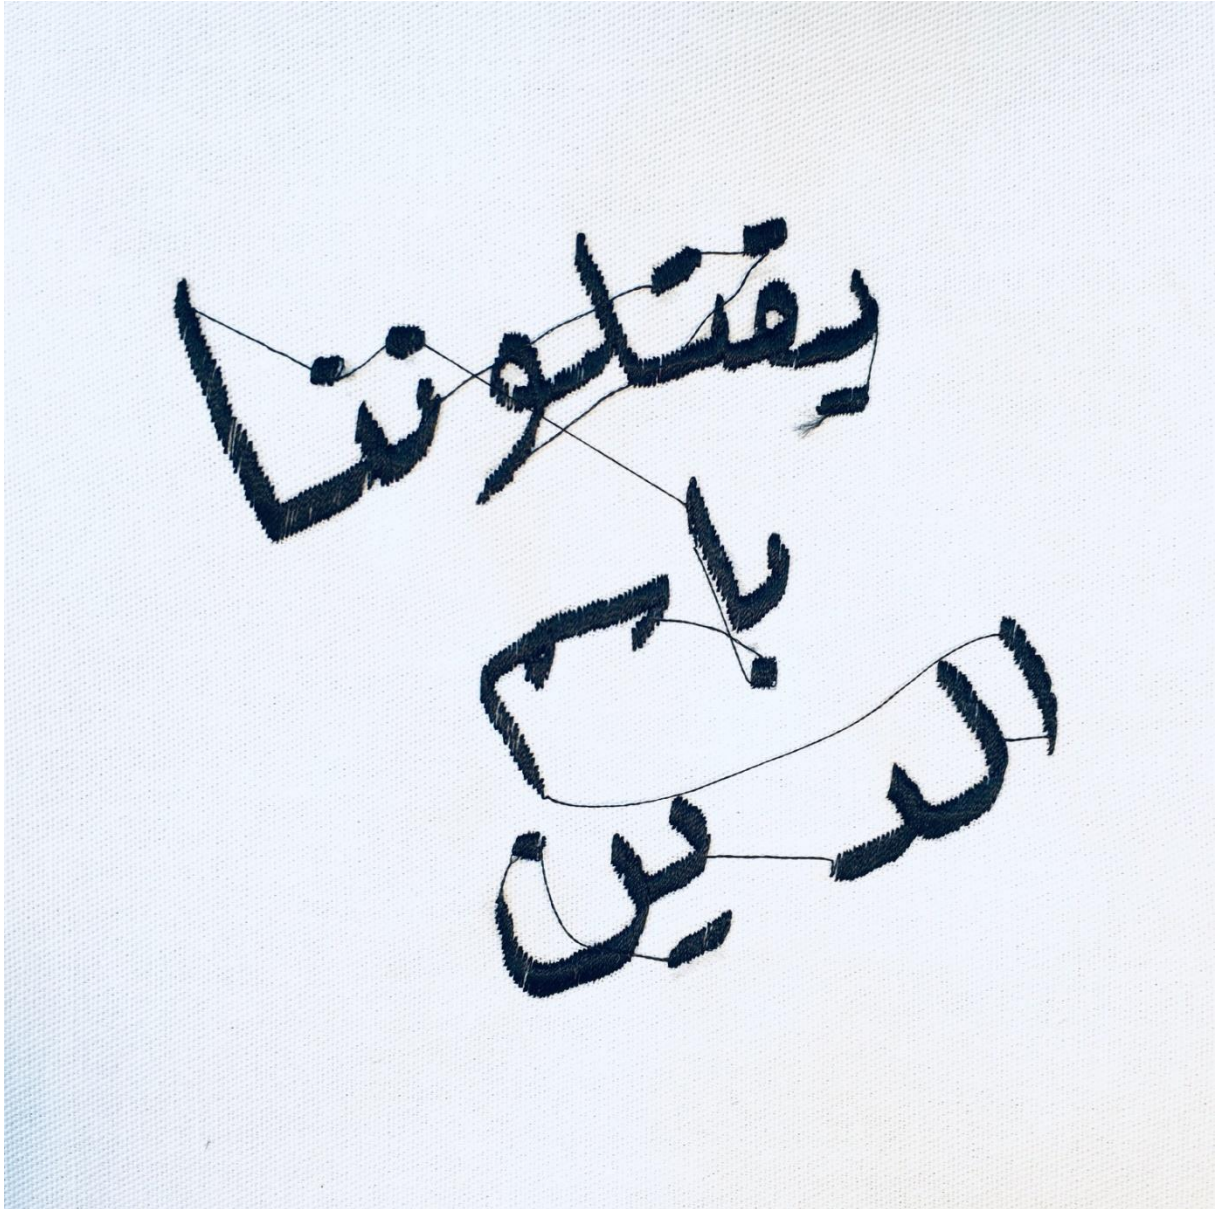 يقتلوننا
باسم
الدين